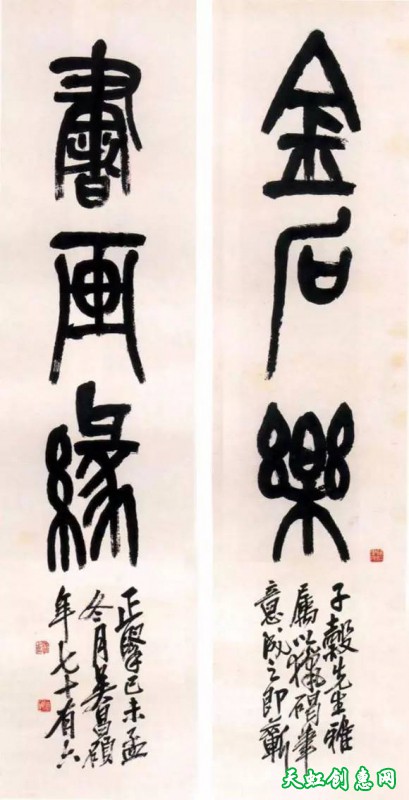 金石樂
子穀先生雅
屬以猎碣筆
意成之即蘄
書画緣
正擘己未孟
冬月吳昌碩
年七十有六
天虹创惠网